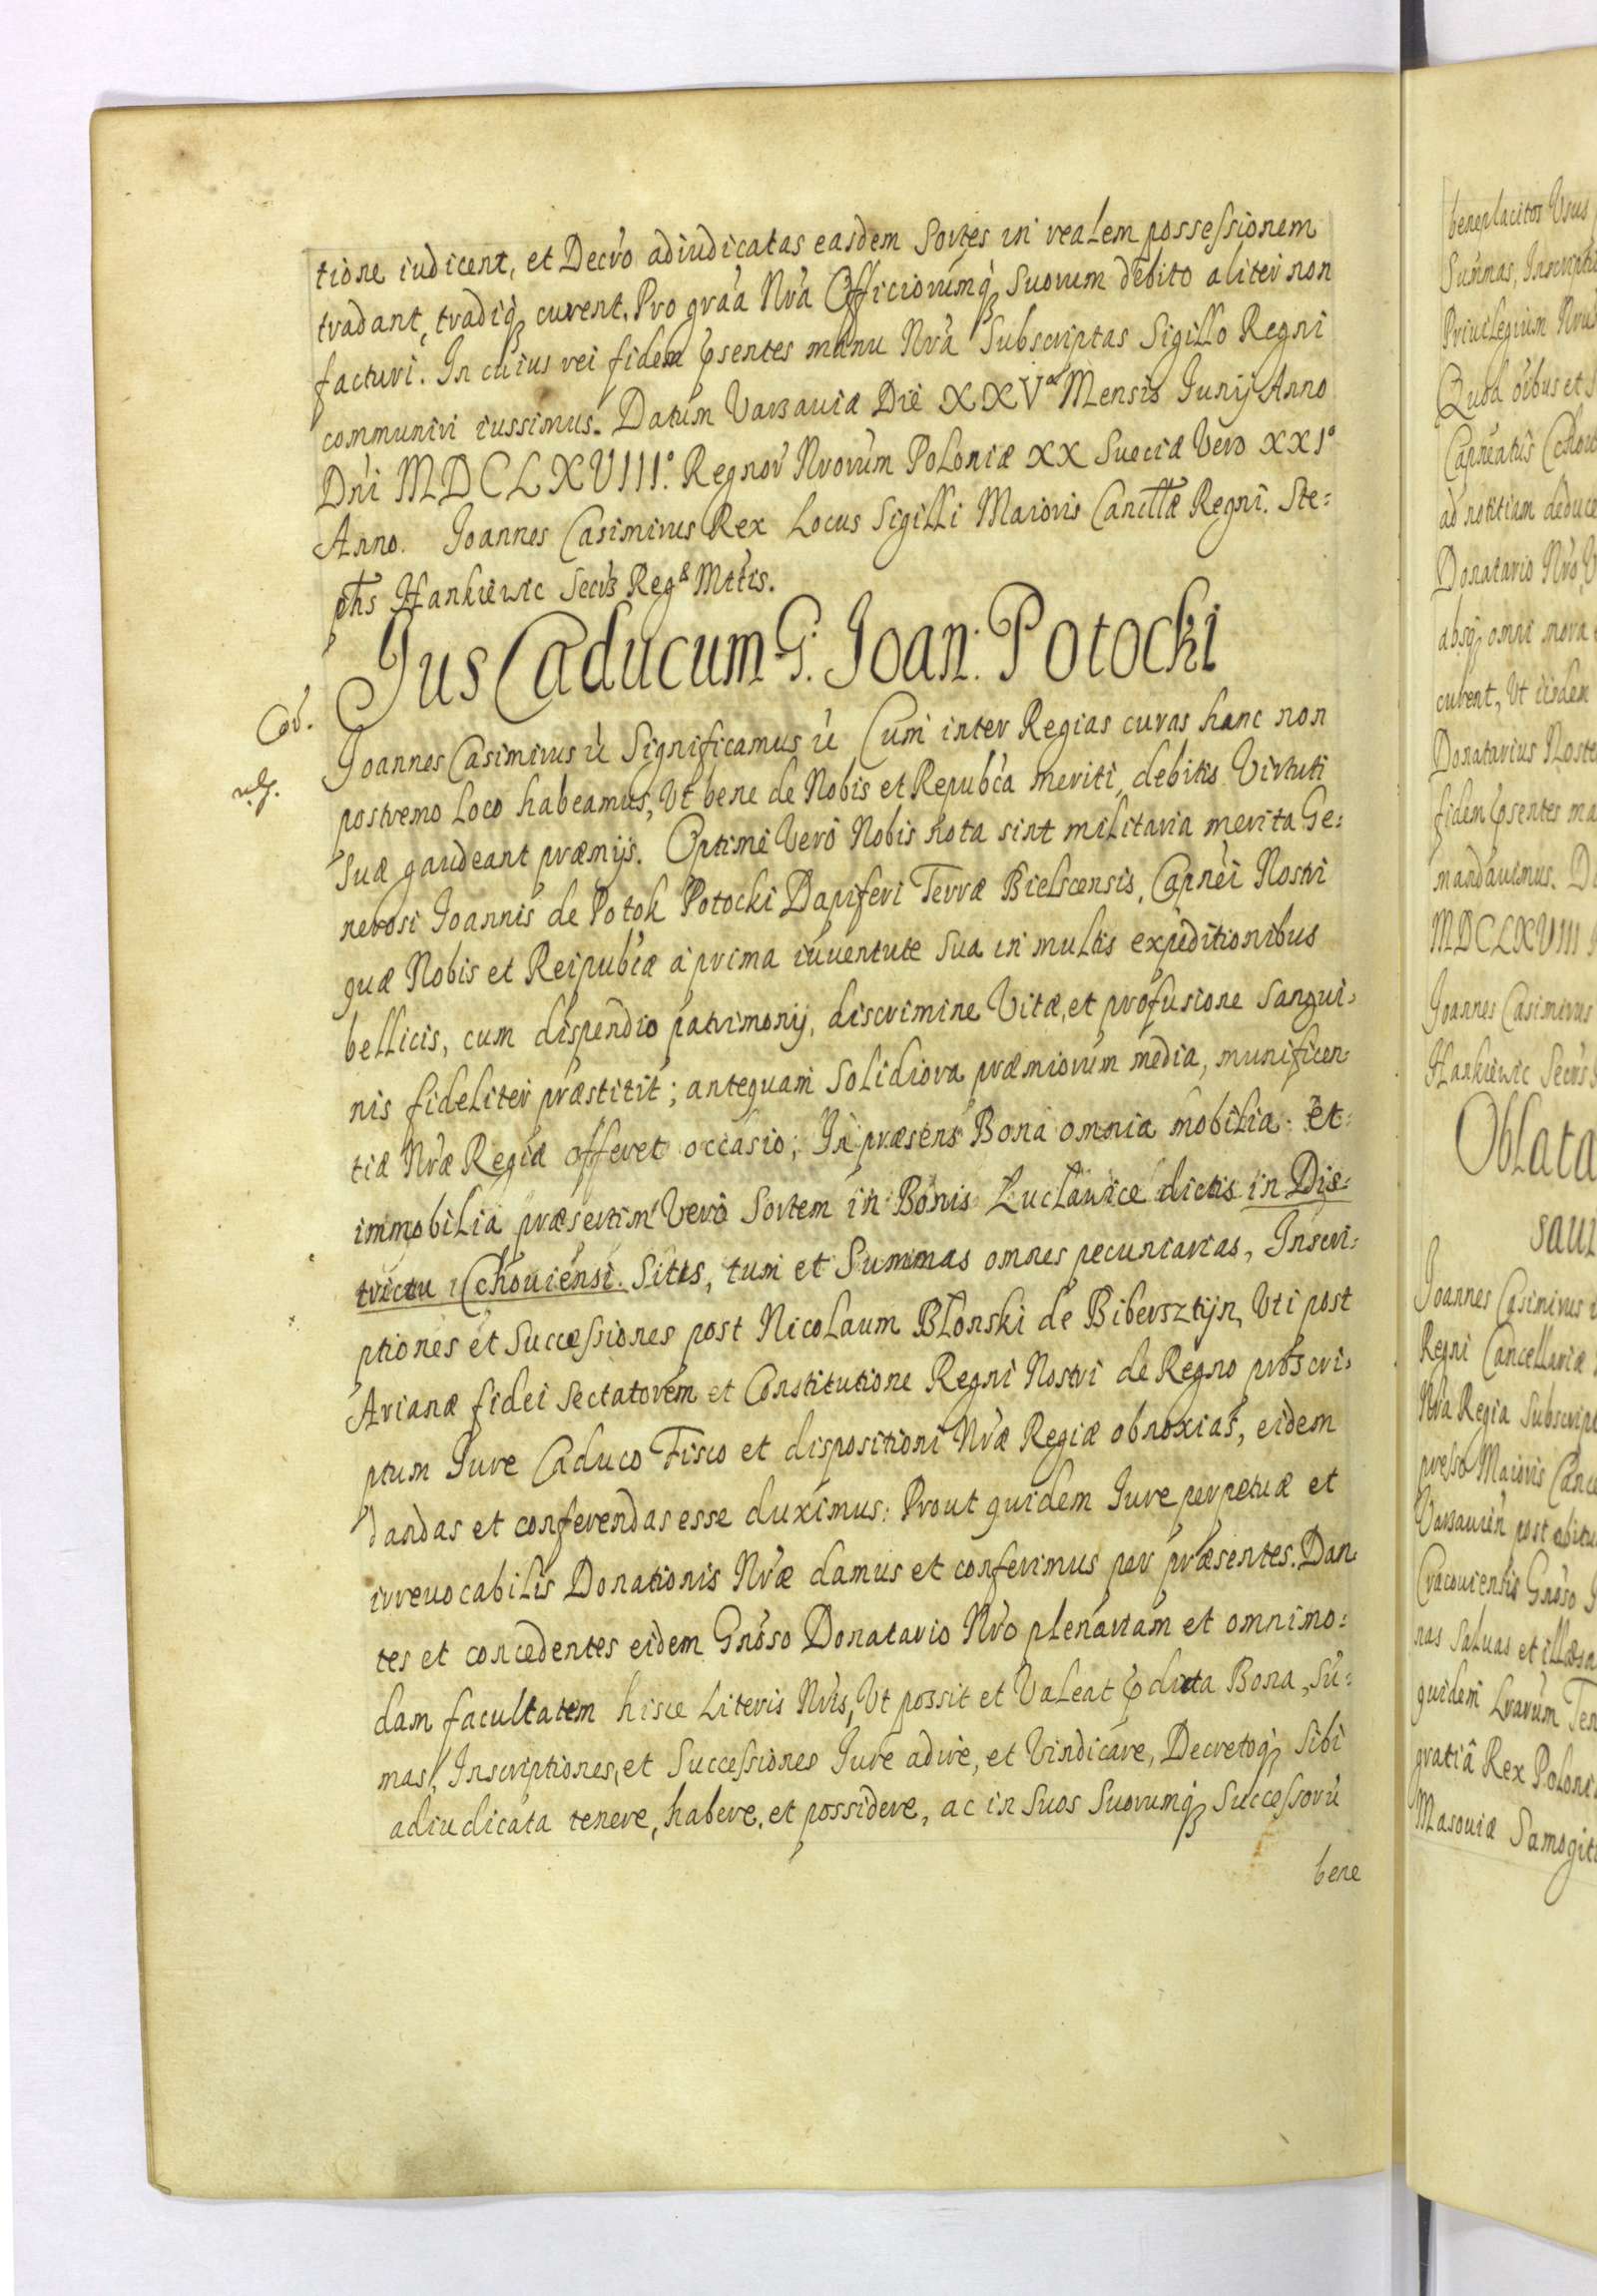 tione iudicent, et Decr̃o adiudicatas easdem Sortes in realem possessionem
tradant, tradiq₃ curent. Pro grãa Nrã Officiorumq₃ Suorum debito aliter non
facturi. In cuius rei fidem p̃sentes manu Nrã Subscriptas Sigillo Regni
communiri iussimus. Datum Varsauiæ Die XXVᵃ Mensis Junij Anno
Dñi MDCLXVIII°. Regnor̃ Nrorum Poloniæ XX Sueciæ Vero XXI°
Anno. Joannes Casimirus Rex Locus Sigilli Maioris Cancllæ Regni. Ste=
phs Hankiewic Secrs Regæ Mttis.
Jus Caducum G: Joan: Potocki
Joannes Casimirus ũ Significamus ũ Cum inter Regias curas hanc non
postremo loco habeamus, Ut bene de Nobis et Repubca meriti, debitis Virtuti
Suæ gaudeant præmijs. Optime Vero Nobis nota sint militaria merita Ge=
nerosi Joannis de Potok Potocki Dapiferi Terræ Bielscensis, Capnei Nostri
quæ Nobis et Reipubcæ a prima iuuentute Sua in multis expeditionibus
bellicis, cum dispendio patrimonij, discrimine Vitæ, et profusione Sangui=
nis fideliter præstitit; antequam Solidiora præmiorum media, munificen=
tiæ Nræ Regiæ offeret occasio; In præsens Bona omnia mobilia et
immobilia præsertim Vero Sortem in Bonis Luclawice dictis in Dis=
trictu Cchouiensi Sitis, tum et Summas omnes pecuniarias, Inscri=
ptiones et Successiones post Nicolaum Blonski de Bibersztijn, Uti post
Arianæ fidei Sectatorem et Constitutione Regni Nostri de Regno proscri=
ptum Jure Caduco Fisco et dispositioni Nræ Regiæ obnoxias, eidem
dandas et conferendas esse duximus: Prout quidem Jure perpetuæ et
irreuocabilis Donationis Nræ damus et conferimus per præsentes. Dan=
tes et concedentes eidem Gnoso Donatario Nro plenariam et omnimo=
dam facultatem hisce Literis Nris, Ut possit et Valeat p̃dicta Bona, Su=
mas, Inscriptiones, et Successiones Jure adire, et Vindicare, Decretoq₃ Sibi
adiudicata tenere, habere, et possidere, ac in Suos Suorumq₃ Successorũ
bene
beneplacitos Usus
Summas, Inscripti
Priuilegium Nru
Quod oibus et
Capneatus Cchou
ad notitiam deduce
Donatario Nro
absq₃ omni mora
curent, Ut iisdem
Donatarius Noste
fidem p̃sentes ma
mandauimus. D
MDCLXVIII
Joannes Casimirus
Hankiewic Secrs
Oblata
Joannes Casimirus
Regni Cancellariæ
Nra Regia Subscript
presso Maioris Cance
Varsauien post obitu
Cracouiensis Gnoso
nas Saluas et illæsa
quidem Lrarum Ten
gratiâ Rex Poloni
Masouiæ Samogit